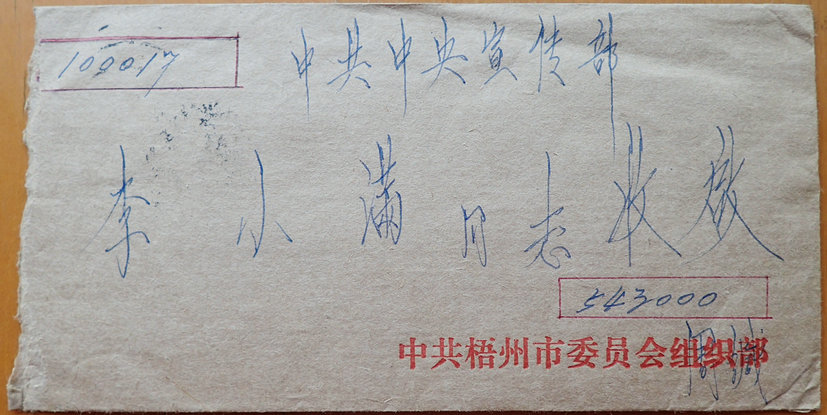 100017
中共中央宣传部
李小满同志收启
543000
中共梧州市委员会组织部
周